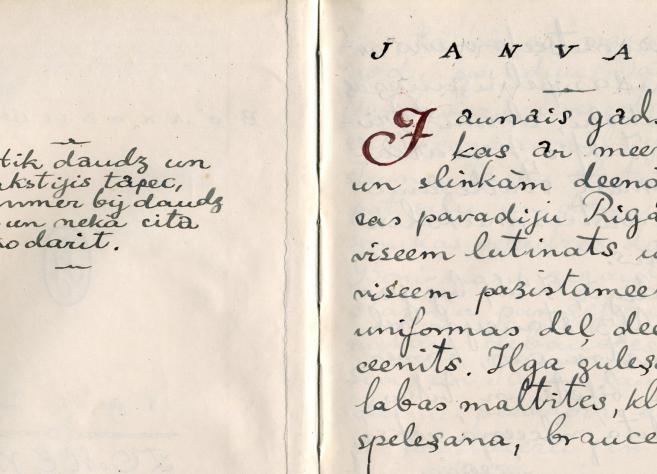 tik daudz un
kstijis tapec,
mmer bij daudz
un neka cita
so darit.
JANVA
Jaunais gads
kas ar meer
un slinkām deenā
eas pavadiju Rigā
viseem lutinats u
viseem pazistamee
uniformas deļ dee
ceenits. Ilga guleşa
labas maltites, kl
speleşana, brauce